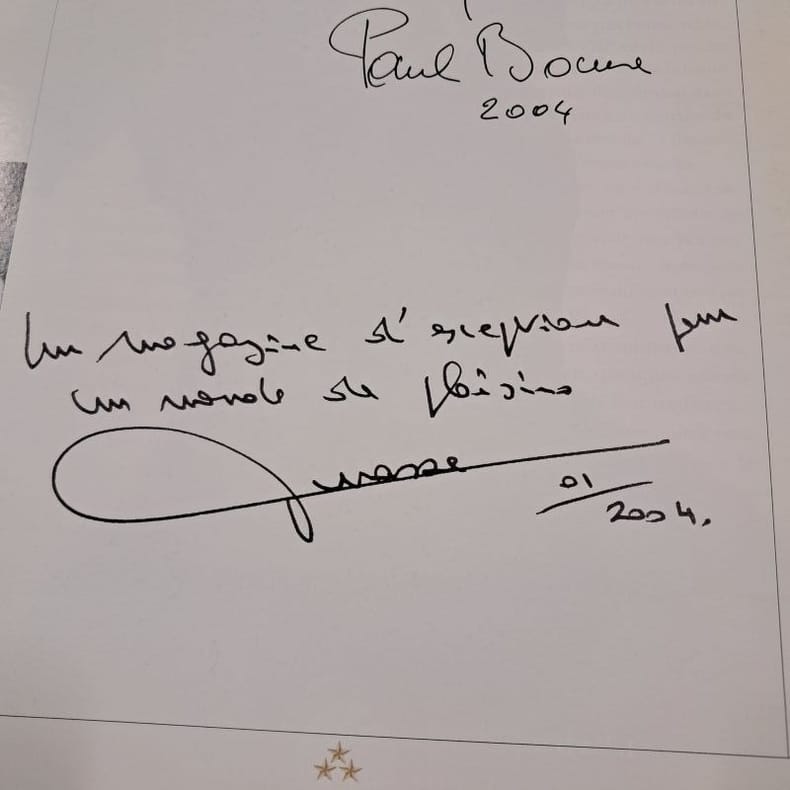 Paul Bocuse
2004
Un magazine d'exception pour
un monde de plaisirs
01/2004.